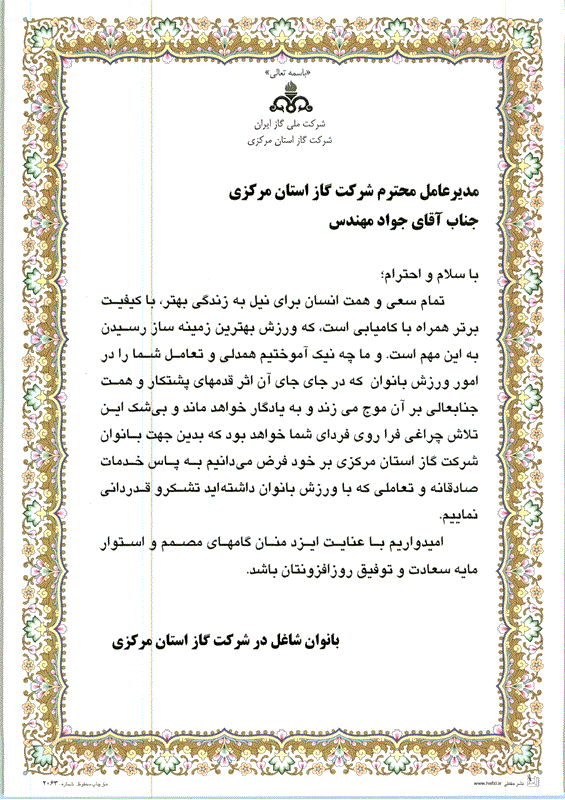 «باسمه تعالی»
شرکت ملی گاز ایران
شرکت گاز استان مرکزی
مدیرعامل محترم شرکت گاز استان مرکزی
جناب آقای جواد مهندس
با سلام و احترام؛
تمام سعی و همت انسان برای نیل به زندگی بهتر، با کیفیت
برتر همراه با کامیابی است، که ورزش بهترین زمینه ساز رسیدن
به این مهم است. و ما چه نیک آموختیم همدلی و تعامل شما را در
امور ورزش بانوان که در جای جای آن اثر قدمهای پشتکار و همت
جنابعالی بر آن موج می زند و به یادگار خواهد ماند و بی‌شک این
تلاش چراغی فرا روی فردای شما خواهد بود که بدین جهت بانوان
شرکت گاز استان مرکزی بر خود فرض می‌دانیم به پاس خدمات
صادقانه و تعاملی که با ورزش بانوان داشته‌اید تشکرو قدردانی
نماییم.
امیدواریم با عنایت ایزد منان گامهای مصمم و استوار
مایه سعادت و توفیق روزافزونتان باشد.
بانوان شاغل در شرکت گاز استان مرکزی
حق چاپ محفوظ. شماره: ۲۰۶۳
www.hafzi.ir